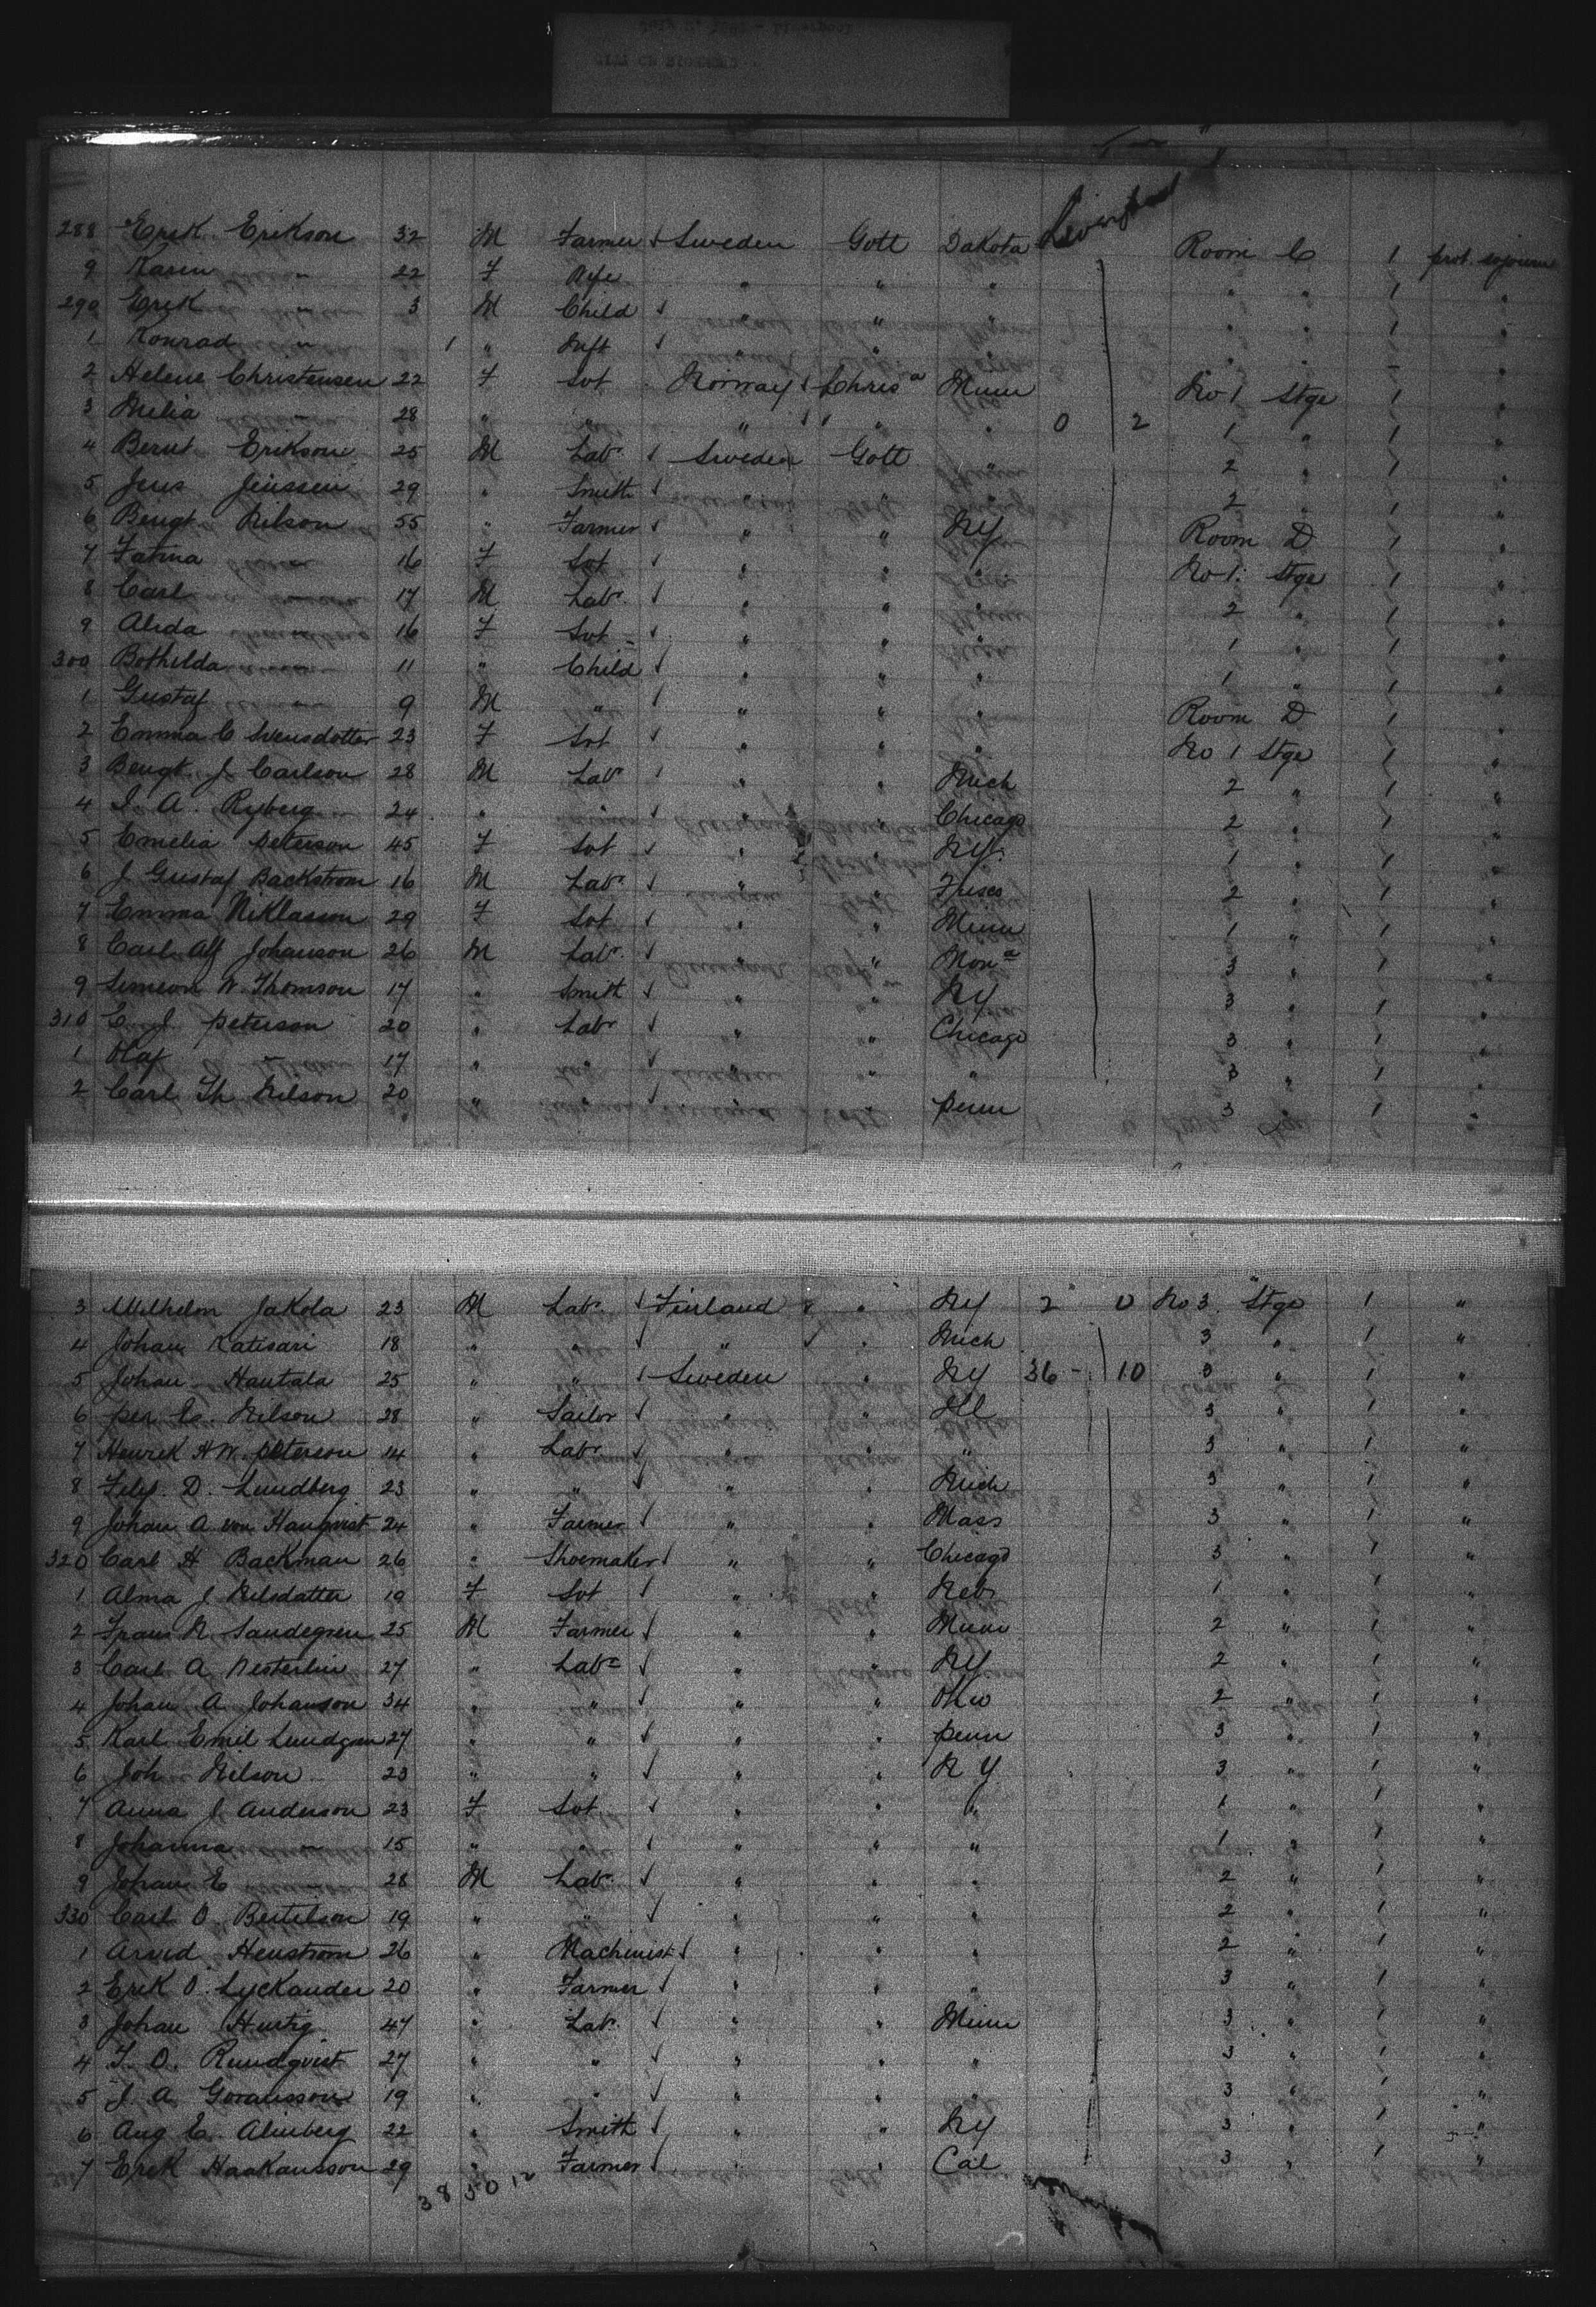 288 Erik Erikson 32 M Farmer Sweden Gott Dakota Room C 1 prot. sojourn
9 Karin " 22 F Wife " " " " " 1 "
290 Erik " 3 M Child " " " " " 1 "
1 Konrad " 1 " Inft " " " " " "
2 Helene Christensen 22 F Svt Norway Chris a Minn No 1 Stge 1 "
3 Melia " 28 " " " " " 0 2 1 " 1 "
4 Bernt Erikson 25 M Labr Sweden Gott " 2 " 1 "
5 Jens Jenssen 29 " Smith " " " 2 " 1 "
6 Bengt Nilson 55 " Farmer " " NY Room D 1 "
7 " 16 F Svt " " " No 1 Stge 1 "
8 Carl " 17 M Labr " " " 2 " 1 "
9 Alida " 16 F Svt " " " 1 " 1 "
300 Bothilda " 11 " Child " " " 1 " 1 "
1 Gustaf " 9 M " " " " Room D 1 "
2 Emma C Svensdotter 23 F Svt " " " No 1 Stge 1 "
3 Bengt J Carlson 28 M Labr " " Mich 2 " 1 "
4 A. Ryberg 24 " " " " Chicago 2 " 1 "
5 Emelia Peterson 45 F Svt " " NY 1 " 1 "
6 J Gustaf Backstrom 16 M Labr " " Frisco 2 " 1 "
7 Emma Niklasson 29 F Svt " " Minn 1 " 1 "
8 Carl Alf Johanson 26 M Labr " " Mon a 3 " 1 "
9 Simeon W Thomson 17 " Smith " " NY 3 " 1 "
310 C J Peterson 20 " Labr " " Chicago 3 " 1 "
1 Olaf " 17 " " " " " 3 " 1 "
2 Carl Th Nilson 20 " " " " Penn 3 " 1 "
3 Wilhelm Jakola 23 M Labr Finland " NY 2 0 No 3 Stge 1 "
4 Johan Katisari 18 " " " " Mich 3 " 1 "
5 Johan Hautala 25 " " Sweden " NY 36 - 10 3 " 1 "
6 Per C. Nilson 28 " Sailor " " Ill 3 " 1 "
7 Henrik A W. Peterson 14 " Labr " " " 3 " 1 "
8 D. Lundberg 23 " " " " Mich 3 " 1 "
9 Johan A von Hauqvist 24 " Farmer " " Mass 3 " 1 "
320 Carl H Backman 26 " Shoemaker " " Chicago 3 " 1 "
1 Alma J Nilsdatter 19 F Svt " " Nebr 1 " 1 "
2 Frans N Sandegren 25 M Farmer " " Minn 2 " 1 "
3 Carl A Westerlin 27 " Labr " " NY 2 " 1 "
4 Johan A Johanson 34 " " " " Ohio 2 " 1 "
5 Karl Emil Lundgren 27 " " " " Penn 3 " 1 "
6 Joh Nilson 23 " " " " N Y 3 " 1 "
7 Anna J Anderson 23 F Svt " " " 1 " 1 "
8 Johanna " 15 " " " " " 1 " 1 "
9 Johan E " 28 M Labr " " " 2 " 1 "
330 Carl O Bertilson 19 " " " " " 2 " 1 "
1 Arvid Henstrom 26 " Machinist " " " 2 " 1 "
2 Erik O. Lyckander 20 " Farmer " " " 3 " 1 "
3 Johan Hurtig 47 " Labr " " Minn 3 " 1 "
4 O. Rundqvist 27 " " " " " 3 " 1 "
5 J A Goransson 19 " " " " " 3 " 1 "
6 Aug E. Almberg 22 " Smith " " NY 3 " 1 "
7 Erik Haakansson 29 " Farmer " " Cal 3 " 1 "
38 50 12